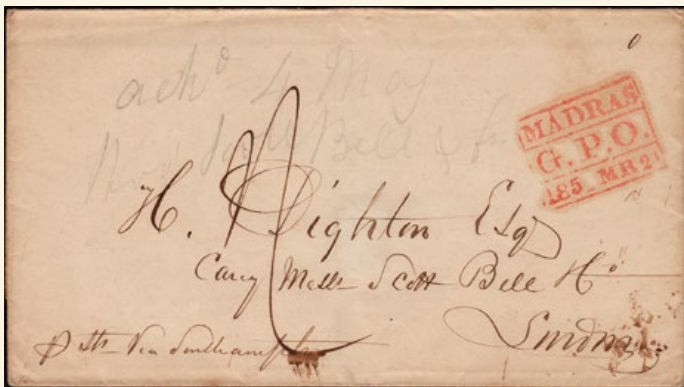 ackd 4 May
Scott Bell & Co
MADRAS
G. P. O.
185 MR 2
H. Dighton Esq
Care Messrs Scott Bell & Co
London
Via Southampton